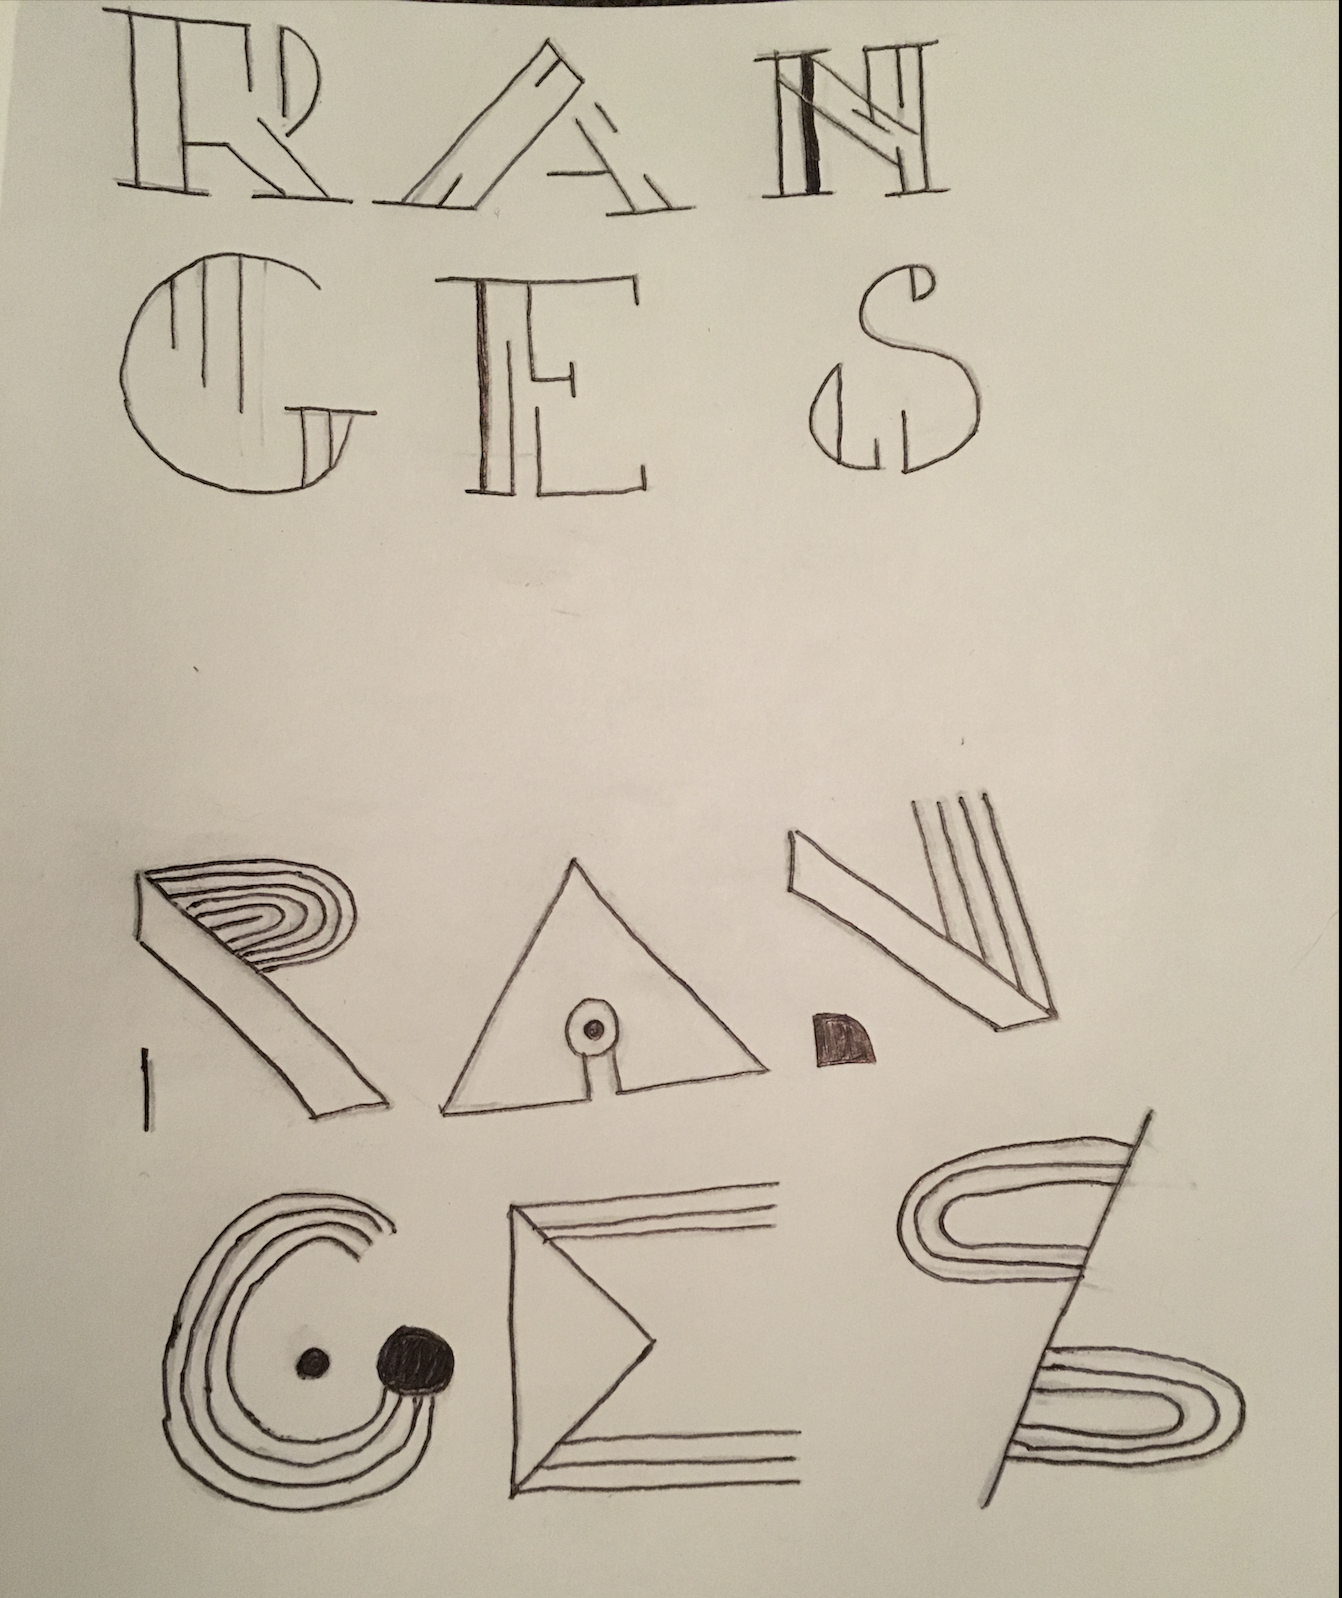 RAN
GES
RAN
GES